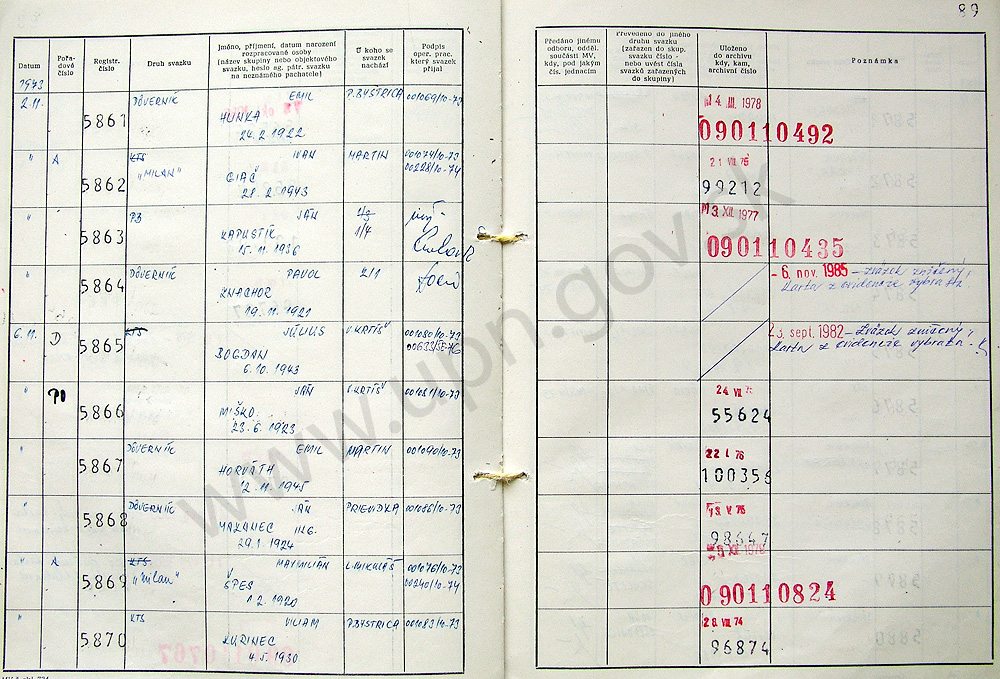 89
Datum
Pořadové číslo
Registr. číslo
Druh svazku
Jméno, příjmení, datum narození
rozpracované osoby
(název skupiny nebo objektového
svazku, heslo ag. pátr. svazku
na neznámého pachatele)
U koho se
svazek
nachází
Podpis
oper. prac.
který svazek
přijal
Předáno jinému
odboru, odděl.
součásti MV,
kdy, pod jakým
čís. jednacím
Převedeno do jiného
druhu svazku
(zařazen do skup.
svazku číslo -
nebo uvést čísla
svazků zařazených
do skupiny)
Uloženo
do archivu
kdy, kam,
archivní číslo
Poznámka
1973
2.11. 5861 DÔVERNÍK EMIL P.BYSTRICA 001069/10-73
HUNKA
24.2.1922
14. III. 1978
090110492
" A 5862 KTS IVAN MARTIN 001074/10-73
"MILAN" GIAČ 00228/10-74
28.2.1943
21 VII 75
99212
" 5863 PB JÁN 1/3
KAPUSTÍK 1/4
15.11.1936
3. XII. 1977
090110435
" 5864 DÔVERNÍK PAVOL 2/1
ZNACHOR
19.11.1921
- 6. nov. 1985 - zväzok zničený,
karta z evidencie vybratá.
6.11. D 5865 KTS JÚLIUS V.KRTÍŠ 001080/10-73
BOGDAN
6.10.1943
23. sept. 1982 - Zväzok zničený,
karta z evidencie vybratá.
" 5866 " JÁN V.KRTÍŠ 001081/10-73
MIŠKO
23.6.1923
24 VII
55624
" 5867 DÔVERNÍK EMIL MARTIN 001090/10-73
HORVÁTH
2.11.1945
22 I 76
100356
" 5868 DÔVERNÍK JÁN PRIEVIDZA 001086/10-73
ING.
29.1.1924
V. 75
98647
" A 5869 KTS MAXIMILIÁN L.MIKULÁŠ 001076/10-73
"Milan" ŠPES 00240/10-74
1 2.1920
XII. 1978
090110824
" 5870 KTS VILIAM P.BYSTRICA 001083/10-73
KURINEC
4.5.1930
28. VIII 74
96874
www.upn.gov.sk